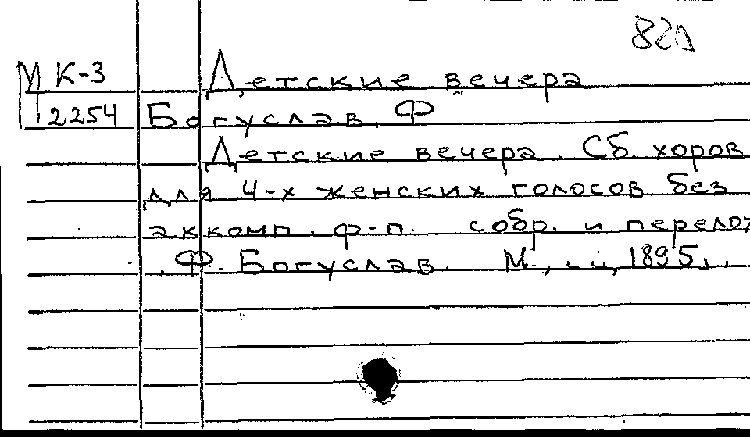 82д
М К-3 Детские вечера
12254 Богуслав Ф
Детские вечера. Сб хоров
для 4-х женских голосов без
аккомп. ф-п. собр. и перелож
Ф. Богуслав. М., ц., 1895,.